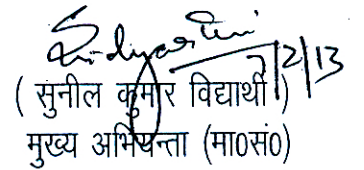 7/2/13
( सुनील कुमार विद्यार्थी )
मुख्य अभियन्ता (मा0सं0)